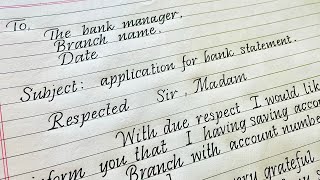 To,
The bank manager.
Branch name.
Date
Subject: application for bank statement.
Respected Sir, Madam
With due respect I would lik
inform you that I having saving accou
Branch with account number
very grateful